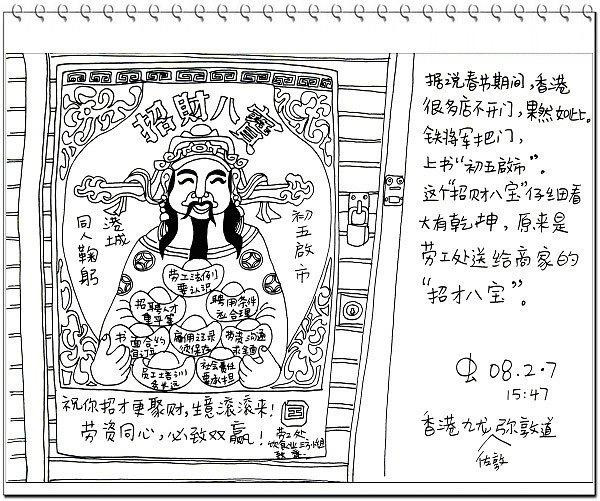 招財八寶
港城
同人鞠躬
初五啟市
劳工法例
要认识
招聘人才
重平等
聘用条件
必合理
书面合约
雇佣记录
须保存
劳资沟通
员工培训
社会责任
要承担
祝你招才更聚财,生意滚滚来!
劳资同心,必致双赢!
劳工处
饮食业三方小组
据说春节期间,香港
很多店不开门,果然如此。
铁将军把门,
上书“初五啟市”。
这个“招财八宝”仔细看
大有乾坤,原来是
劳工处送给商家的
“招才八宝”。
08.2.7
15:47
香港九龙弥敦道
佐敦